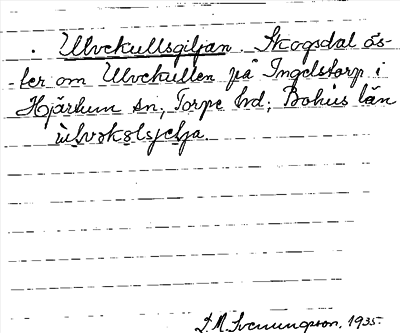 . Ulvekullsgiljan. Skogsdal ös-
-ter om Ulvekullen på Ingelstorp i
Hjärtum sn, Torpe hd, Bohus län
ùlvəkəlsjelja.
1935.